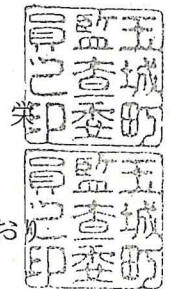 玉城町
監査委
員之印
栄
玉城町
監査委
員之印
おり